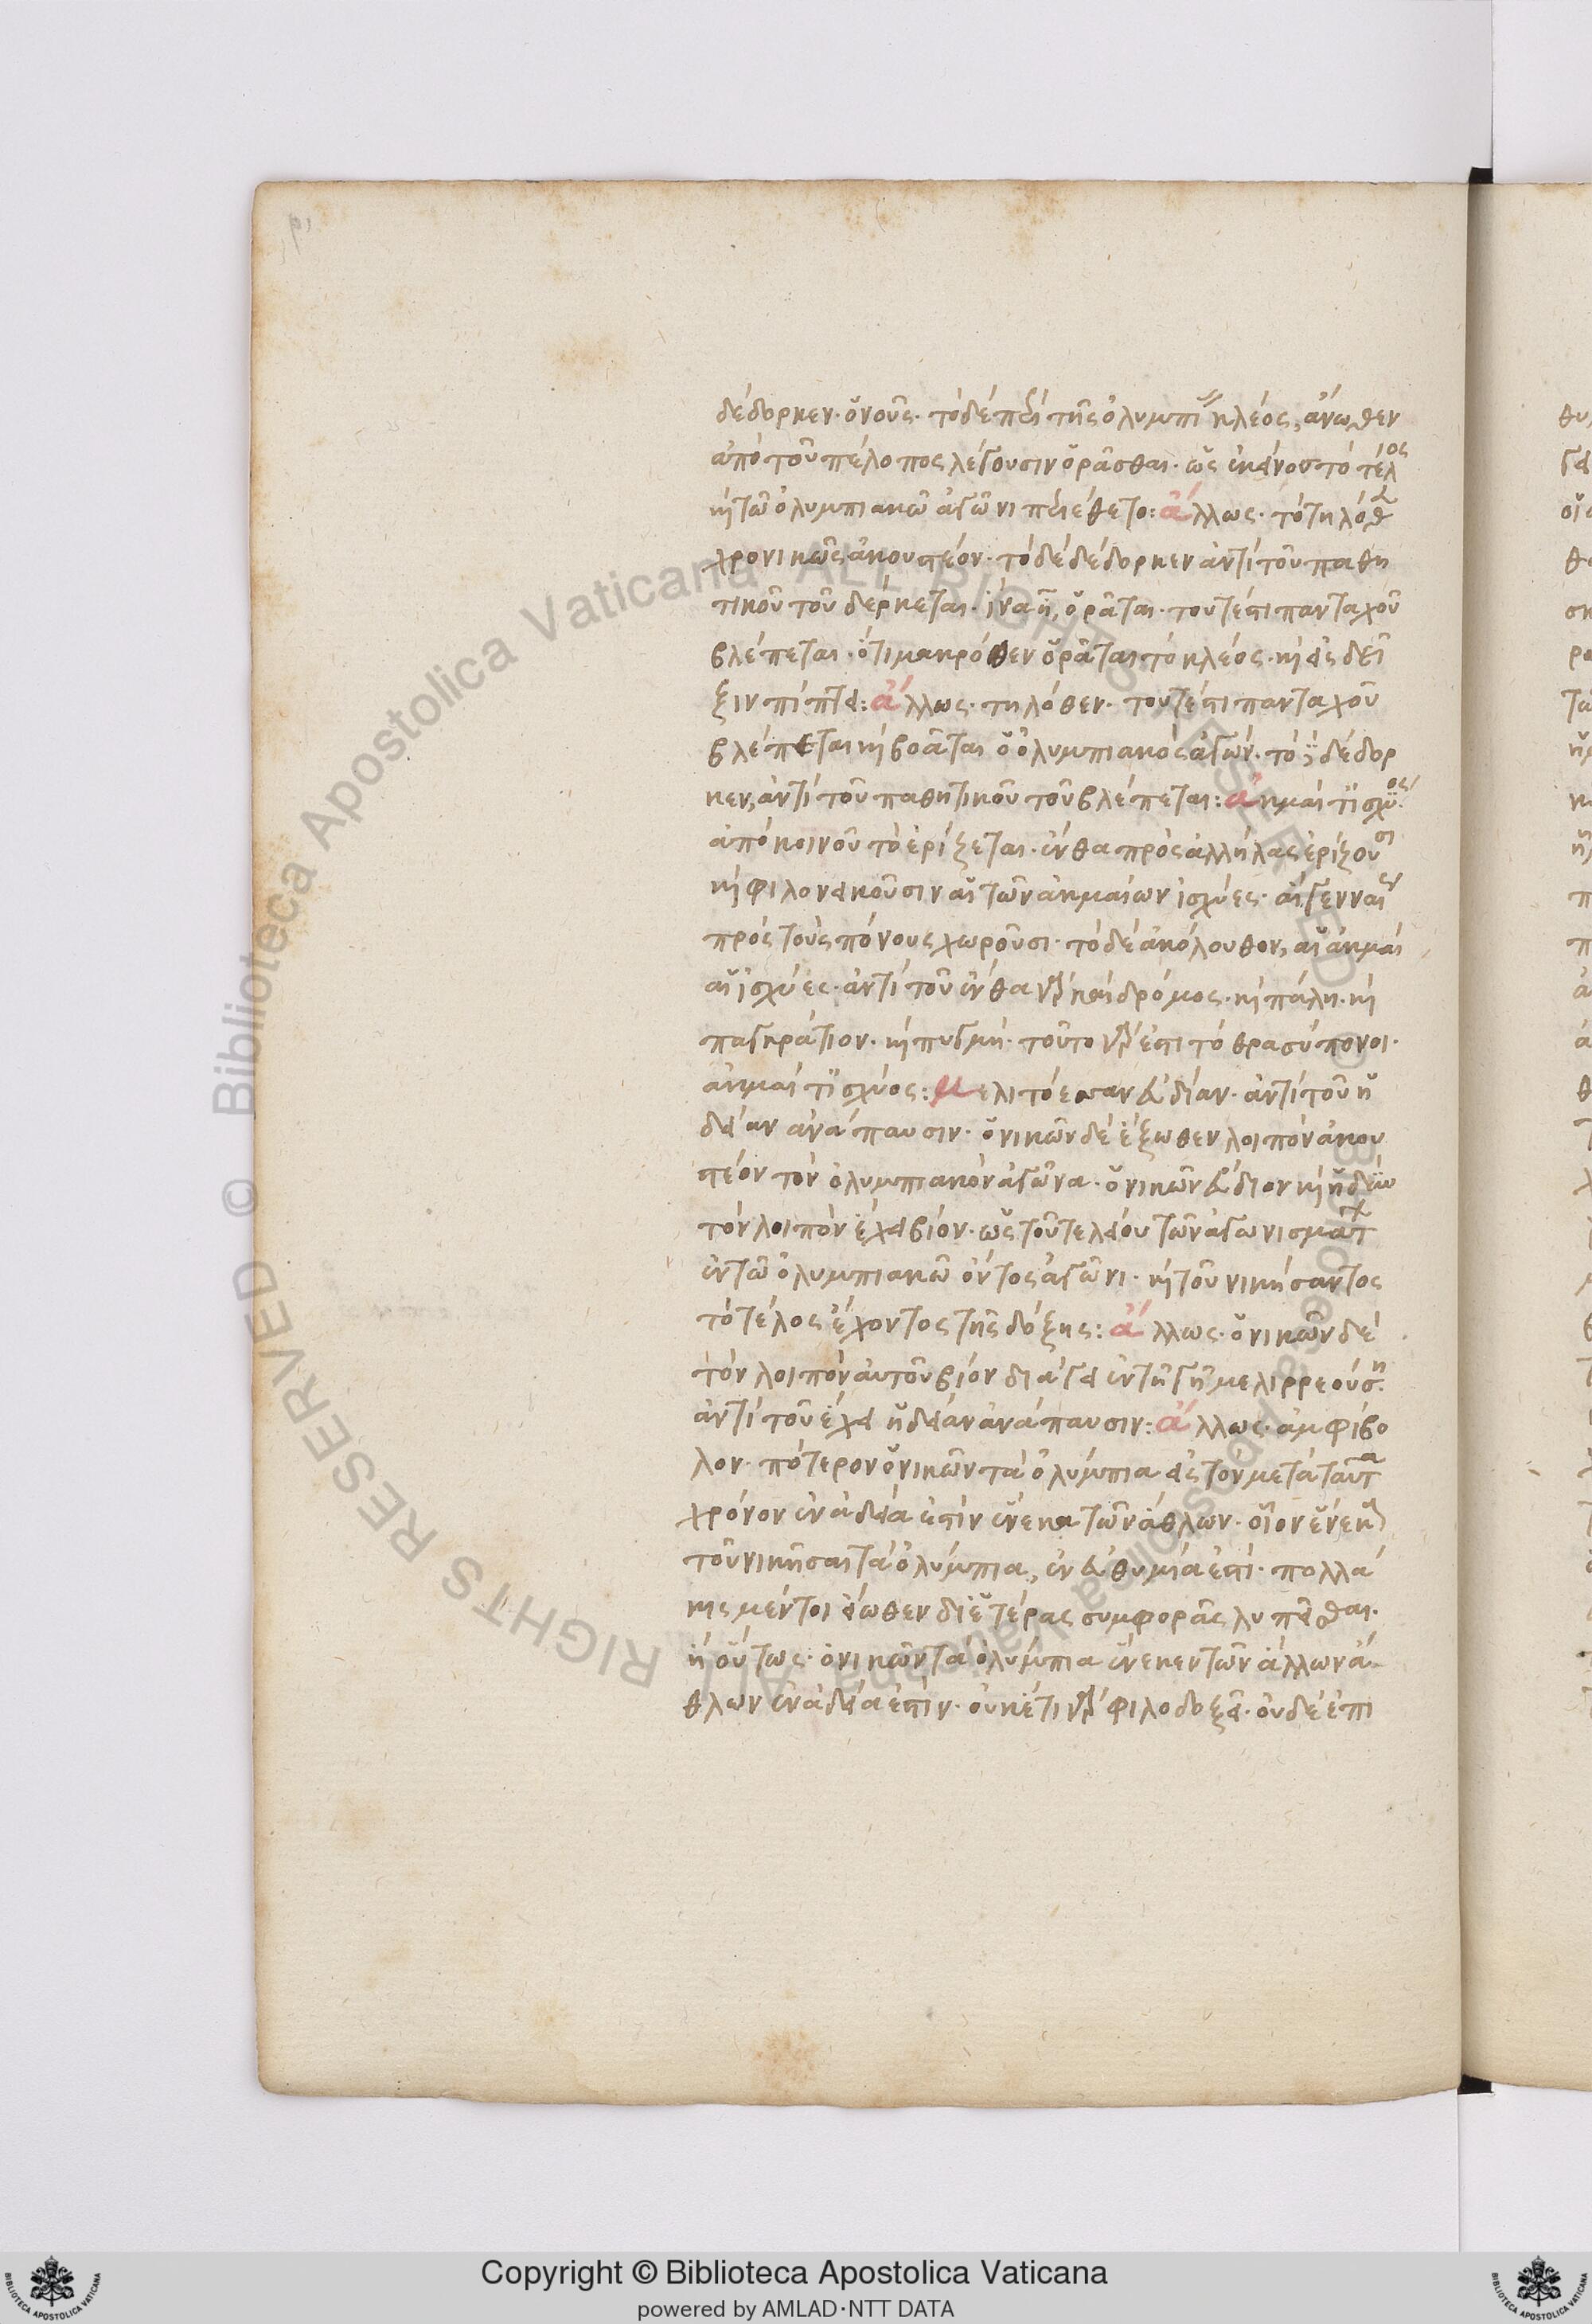 δέδορκεν· ὁ νοῦς· τὸ δὲ περὶ τῆς ὀλυμπι κλέος, ἄνωθεν
ἀπὸ τοῦ πέλοπος λέγουσιν ὁρᾶσθαι· ὡς ἐκεῖνος τὸ τέλος
καὶ τῶ ὀλυμπιακῶ ἀγῶνι περιέθετο: ἄλλως· τὸ τηλόθεν
χρονικῶς ἀκουστέον· τὸ δὲ δέδορκεν ἀντὶ τοῦ παθη
τικοῦ τοῦ δέρκεται· ἵνα ἦ, ὁρᾶται· τουτέστι πανταχοῦ
βλέπεται· ὅτι μακρόθεν ὁρᾶται τὸ κλέος· καὶ εἰς δεῖ
ξιν πίπτει: ἄλλως· τηλόθεν· τουτέστι πανταχοῦ
βλέπεται καὶ βοᾶται ὁ ὀλυμπιακὸς ἀγών· τὸ δὲ δέδορ
κεν, ἀντὶ τοῦ παθητικοῦ τοῦ βλέπεται: ἀκμαί τ' ἰσχύος·
ἀπὸ κοινοῦ τὸ ἐρίζεται· ἔνθα πρὸς ἀλλήλας ἐρίζουσι
καὶ φιλονεικοῦσιν αἱ τῶν ἀκμαίων ἰσχύες· αἳ γενναίως
πρὸς τοὺς πόνους χωροῦσι· τὸ δὲ ἀκόλουθον, αἱ ἀκμαὶ
αἱ ἰσχύες· ἀντὶ τοῦ ἔνθα γὰρ καὶ δρόμος· καὶ πάλη· καὶ
παγκράτιον· καὶ πυγμή· τοῦτο γάρ ἐστι τὸ θρασύπονοι·
ἀκμαί τ' ἰσχύος: μελιτόεσσαν εὐδίαν· ἀντὶ τοῦ ἡ
δεῖαν ἀνάπαυσιν· ὁ νικῶν δὲ ἔξωθεν λοιπὸν ἀκου
στέον τὸν ὀλυμπιακὸν ἀγῶνα· ὁ νικῶν εὔδιον καὶ ἡδείω
τὸν λοιπὸν ἔχει βίον· ὡς τοῦ τελείου τῶν ἀγωνισμάτων
ἐν τῶ ὀλυμπιακῶ ὄντος ἀγῶνι· καὶ τοῦ νικήσαντος
τὸ τέλος ἔχοντος τῆς δόξης: ἄλλως· ὁ νικῶν δὲ
τὸν λοιπὸν αὐτοῦ βίον διάγει ἐν τῆ γῆ μελιρρεούση·
ἀντὶ τοῦ ἔχει ἡδεῖαν ἀνάπαυσιν: ἄλλως· ἀμφίβο
λον· πότερον ὁ νικῶν τὰ ὀλύμπια εἰς τὸν μετὰ ταῦτα
χρόνον ἐν ἀδεία ἐστὶν ἕνεκα τῶν ἄθλων· οἷον ἕνεκα
τοῦ νικῆσαι τὰ ὀλύμπια, ἐν εὐθυμία ἐστί· πολλά
κις μέντοι εἴωθεν δι' ἑτέρας συμφορᾶς λυπεῖσθαι·
ἢ οὕτως· ὁ νικῶν τὰ ὀλύμπια ἕνεκεν τῶν ἄλλων ἄ
θλων ἐν ἀδεία ἐστίν· οὐκέτι γὰρ φιλοδοξεῖ· οὐδὲ ἐπι
Copyright © Biblioteca Apostolica Vaticana
powered by AMLAD·NTT DATA